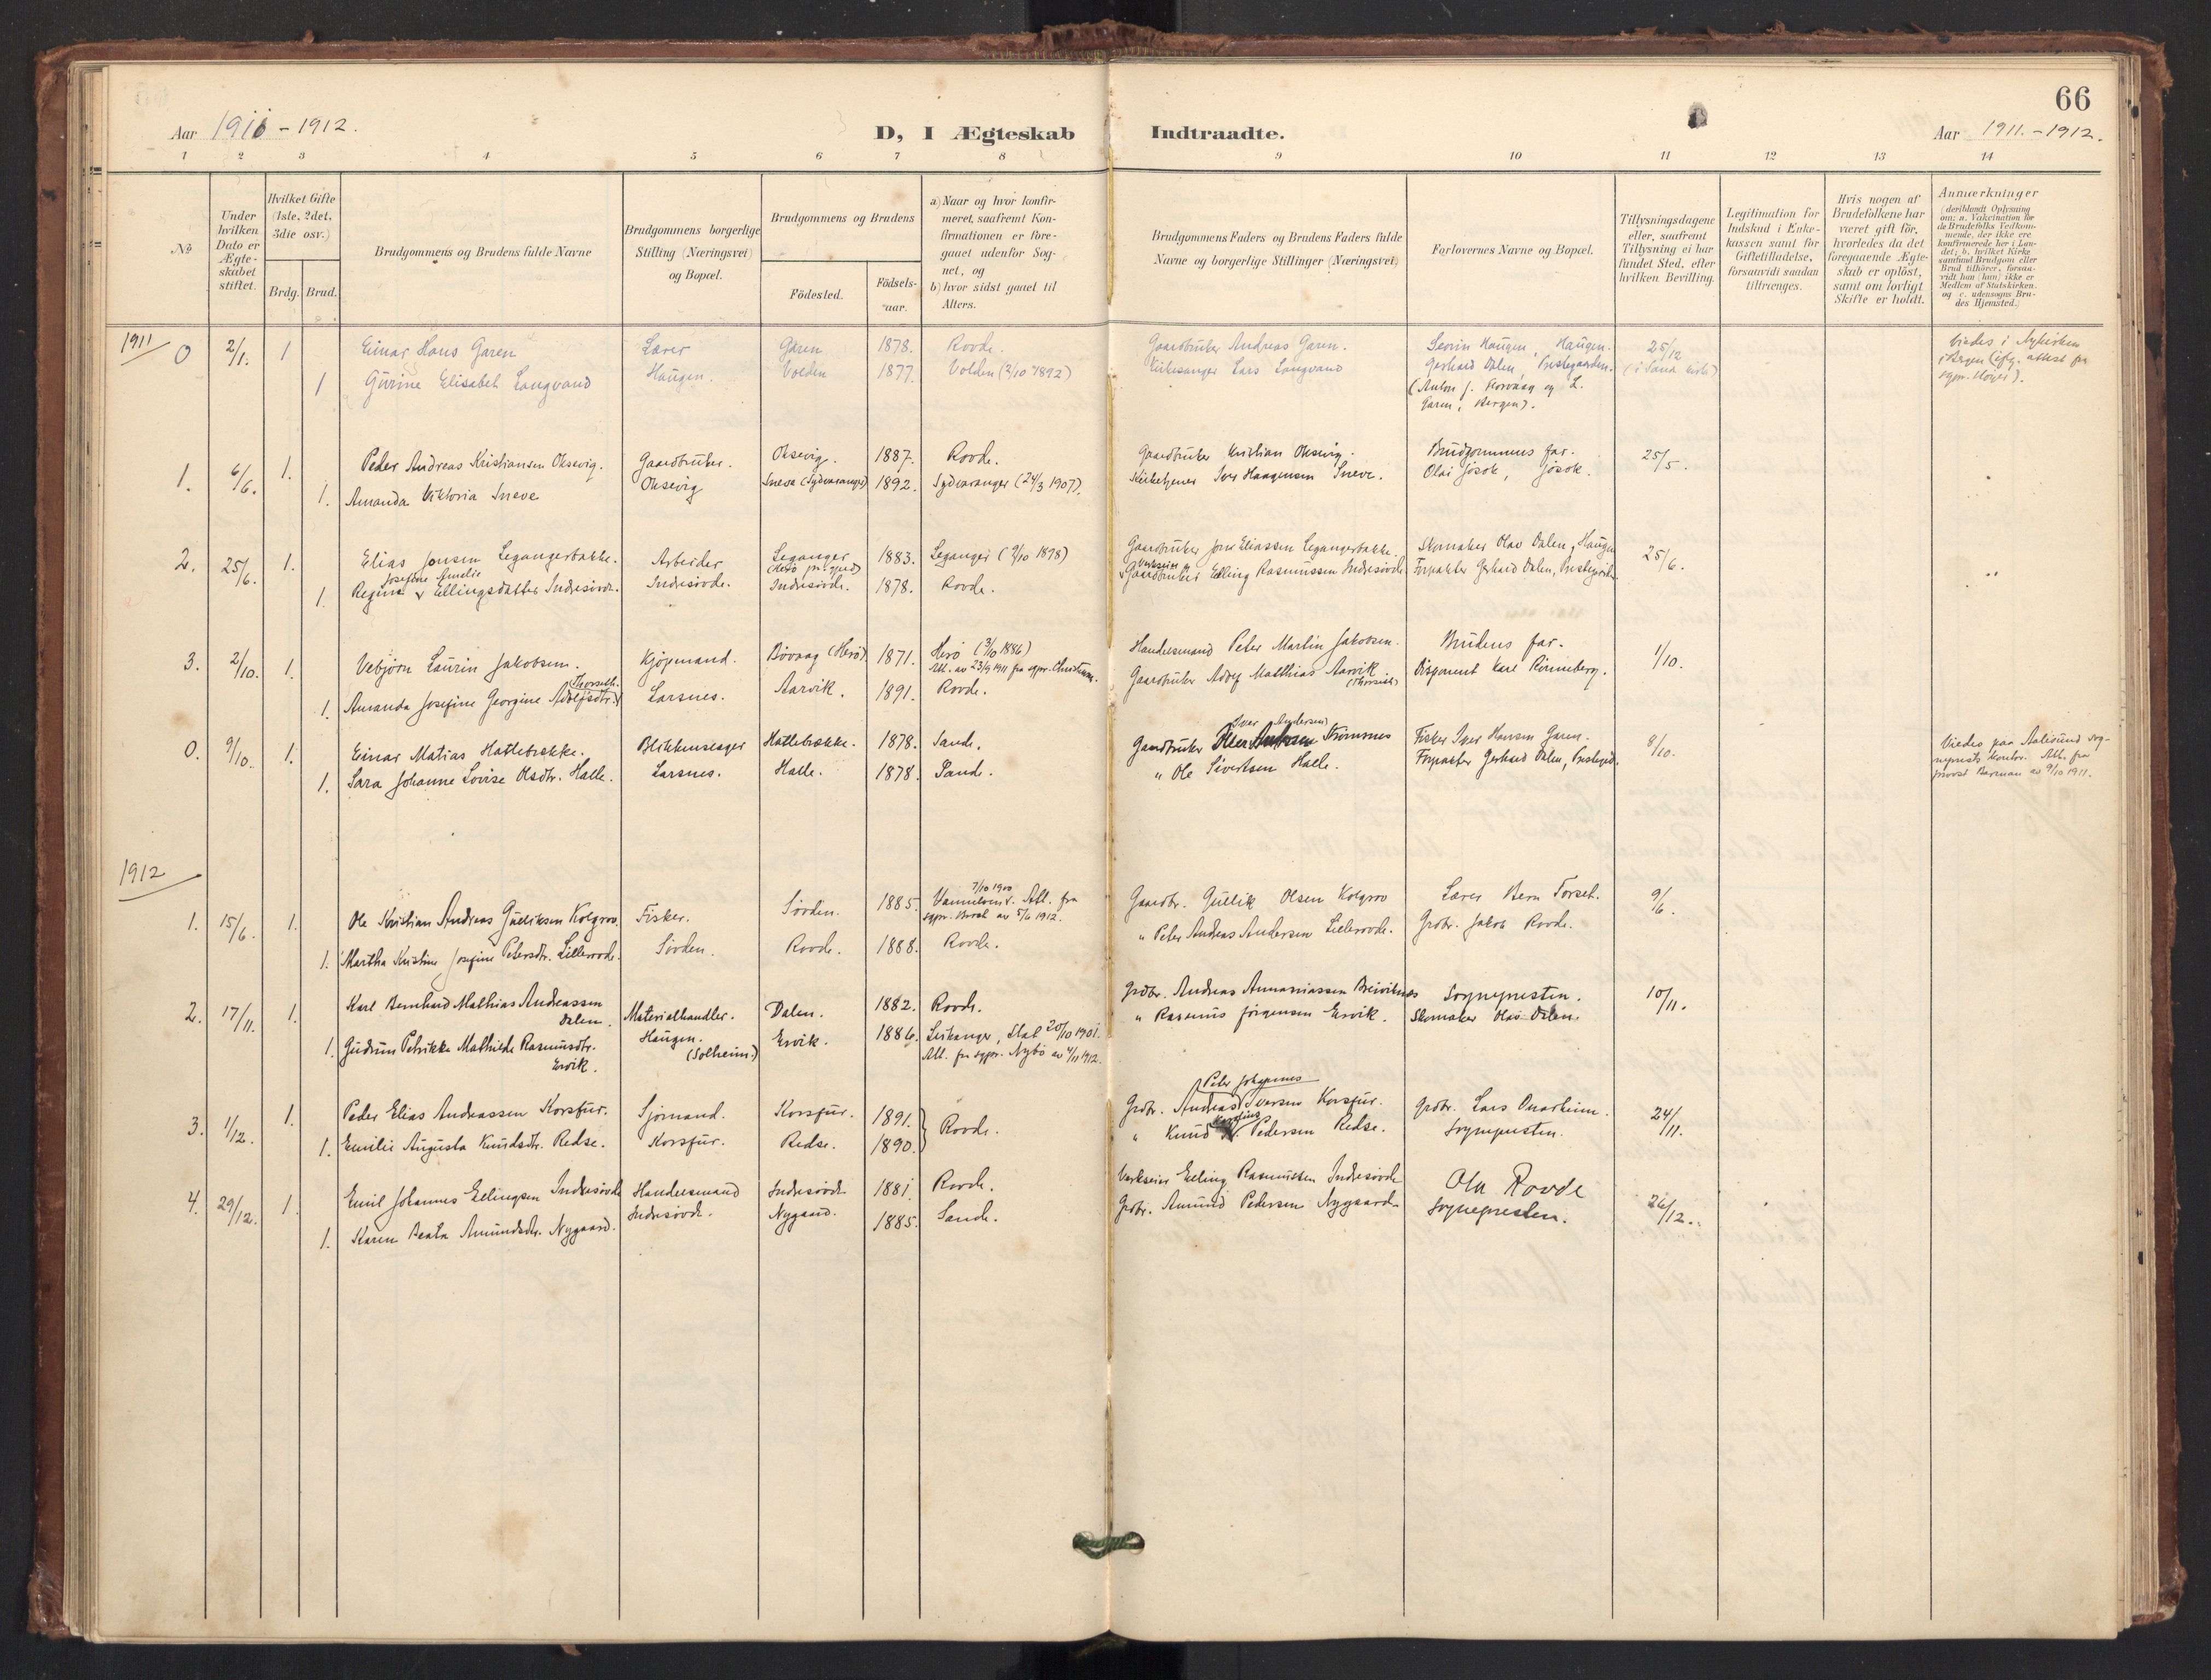 66
Aar 1911 - 1912.
D, I Ægteskab Indtraadte.
Aar 1911. - 1912.
1 2 3 4 5 6 7 8 9 10 11 12 13 14
No
Under hvilken Dato er Ægteskabet stiftet.
Hvilket Gifte (1ste, 2det, 3die osv.)
Brdg. Brud.
Brudgommens og Brudens fulde Navne
Brudgommens borgerlige Stilling (Næringsvei) og Bopæl.
Brudgommens og Brudens
Födested.
Födsels-aar.
a) Naar og hvor konfirmeret, saafremt Konfirmationen er foregaaet udenfor Sognet, og
b) hvor sidst gaaet til Alters.
Brudgommens Faders og Brudens Faders fulde Navne og borgerlige Stillinger (Næringsvei)
Forlovernes Navne og Bopæl.
Tillysningsdagene eller, saafremt Tillysning ei har fundet Sted, efter hvilken Bevilling.
Legitimation for Indskud i Enkekassen samt for Giftetilladelse, forsaavidt saadan tiltrænges.
Hvis nogen af Brudefolkene har været gift för, hvorledes da det foregaaende Ægteskab er oplöst, samt om lovligt Skifte er holdt.
Anmærkninger
(deriblandt Oplysning om: a. Vakcination for de Brudefolks Vedkommende, der ikke ere konfirmerede her i Landet; b. hvilket Kirkesamfund Brudgom eller Brud tilhörer, forsaavidt han (hun) ikke er Medlem af Statskirken. og c. udensogns Brudes Hjemsted.)
1911
0 2/1. 1 Einar Hans Garen Lærer Garen 1878. Rovde. Gaardbruker Andreas Garen. Severin Haugen, Haugen. 25/12 Viedes i Nykirken
1 Gurine Elisabet Langvand Haugen. Volden 1877. Volden (2/10 1892) Kirkesanger Lars Langvand Gerhard Dalen, Prestegaarden. (i Sand kirke) i Bergen (iflg. attest fra
(Anton J. Korvaag og L. sgpr. Høyer).
Garen, Bergen).
1. 6/6. 1. Peder Andreas Kristiansen Oksevig. Gaardbruker. Oksevig. 1887. Rovde. Gaardbruker Kristian Oksevig. Brudgommens far. 25/5.
1. Amanda Viktoria Sneve Oksevig Sneve (Sydvaranger) 1892. Sydvaranger (24/3 1907). Kirketjener Iver Haagensen Sneve. Olai Jøsok, Jøsok.
2. 25/6. 1. Elias Jonsen Legangerbakke. Arbeider Leganger 1883. Leganger (9/10 1898) Gaardbruker Jon Eliassen Legangerbakke. Skomaker Olav Dalen, Haugen 25/6.
Josefine Amelie
1. Regine Ellingsdatter Indresövde. Indresövde. Indresövde. 1878. Rovde. Gaardbruker Elling Rasmussen Indresövde. Forpakter Gerhard Dalen, Prestegaarden
3. 2/10. 1. Vebjørn Laurin Jakobsen. Kjöpmand. Bövaag (Herö) 1871. Herö (3/10 1886) Handelsmand Peter Martin Jakobsen. Brudens far. 1/10.
Att. av 23/9 1911 fra sgpr. Christensen.
Thorseth.
1. Amanda Josefine Georgine Adolfsdtr. Larsnes. Aarvik. 1891. Rovde. Gaardbruker Adolf Matthias Aarvik Disponent Karl Rönneberg.
(Thorseth)
0. 9/10. 1. Einar Matias Hatlebrekke. Blikkenslager Hatlebrekke. 1878. Sande. Gaardbruker Iver Andersen Strömmes Fisker Iver Hansen Garen. 8/10. Viedes paa Aalesund sog-
1. Sara Johanne Lovise Olsdtr. Halle. Larsnes. Halle. 1878. Sand. " Ole Sivertsen Halle. Forpakter Gerhard Dalen, Prestegrd. neprests kontor. Att. fra
provst Barman av 9/10 1911.
1912
1. 15/6. 1. Ole Kristian Andreas Gulliksen Kolgrov. Fisker. Sövden. 1885. Vannelven 7/10 1900. Att. fra Gaardbr. Gullik Olsen Kolgrov Lærer Bern Torset. 9/6.
sgpr. av 5/6 1912.
1. Martha Kristine Josefine Petersdtr. Lillerovde. Sövden. Rovde. 1888. Rovde. " Peter Andreas Andersen Lillerovde. Grdbr. Jakob Rovde.
2. 17/11. 1. Karl Bernhard Mathias Andreassen Dalen. Materialhandler. Dalen. 1882. Rovde. Grdbr. Andreas Annaniassen Breivikness Sognepresten. 10/11.
1. Gudrun Petrikke Mathilde Rasmusdtr. Ervik. Haugen. (Solheim.) Ervik. 1886. Leikanger, Stat 20/10 1901. " Rasmus Jörgensen Ervik. Skomaker Olav Dalen.
Att. fra sgpr. Nybö av 4/11 1912.
Peter Johannes
3. 1/12. 1. Peder Elias Andreassen Korsfur. Sjömand. Korsfur. 1891. Rovde. Grdbr. Andreas Iversen Korsfur. Grdbr. Lars Onarheim. 24/11.
1. Emilie Augusta Knudsdtr. Redse. Korsfur. Redse. 1890. " Knud Pedersen Redse. Sognepresten.
4. 29/12. 1. Emil Johannes Ellingsen Indresövde Handelsmand Indresövde 1881. Rovde. Verkseier Elling Rasmussen Indresövde Ola Rovde 26/12.
1. Karen Beata Amundsdtr. Nygaard. Indresövde. Nygaard. 1885. Sande. Grdbr. Amund Pedersen Nygaard Sognepresten.